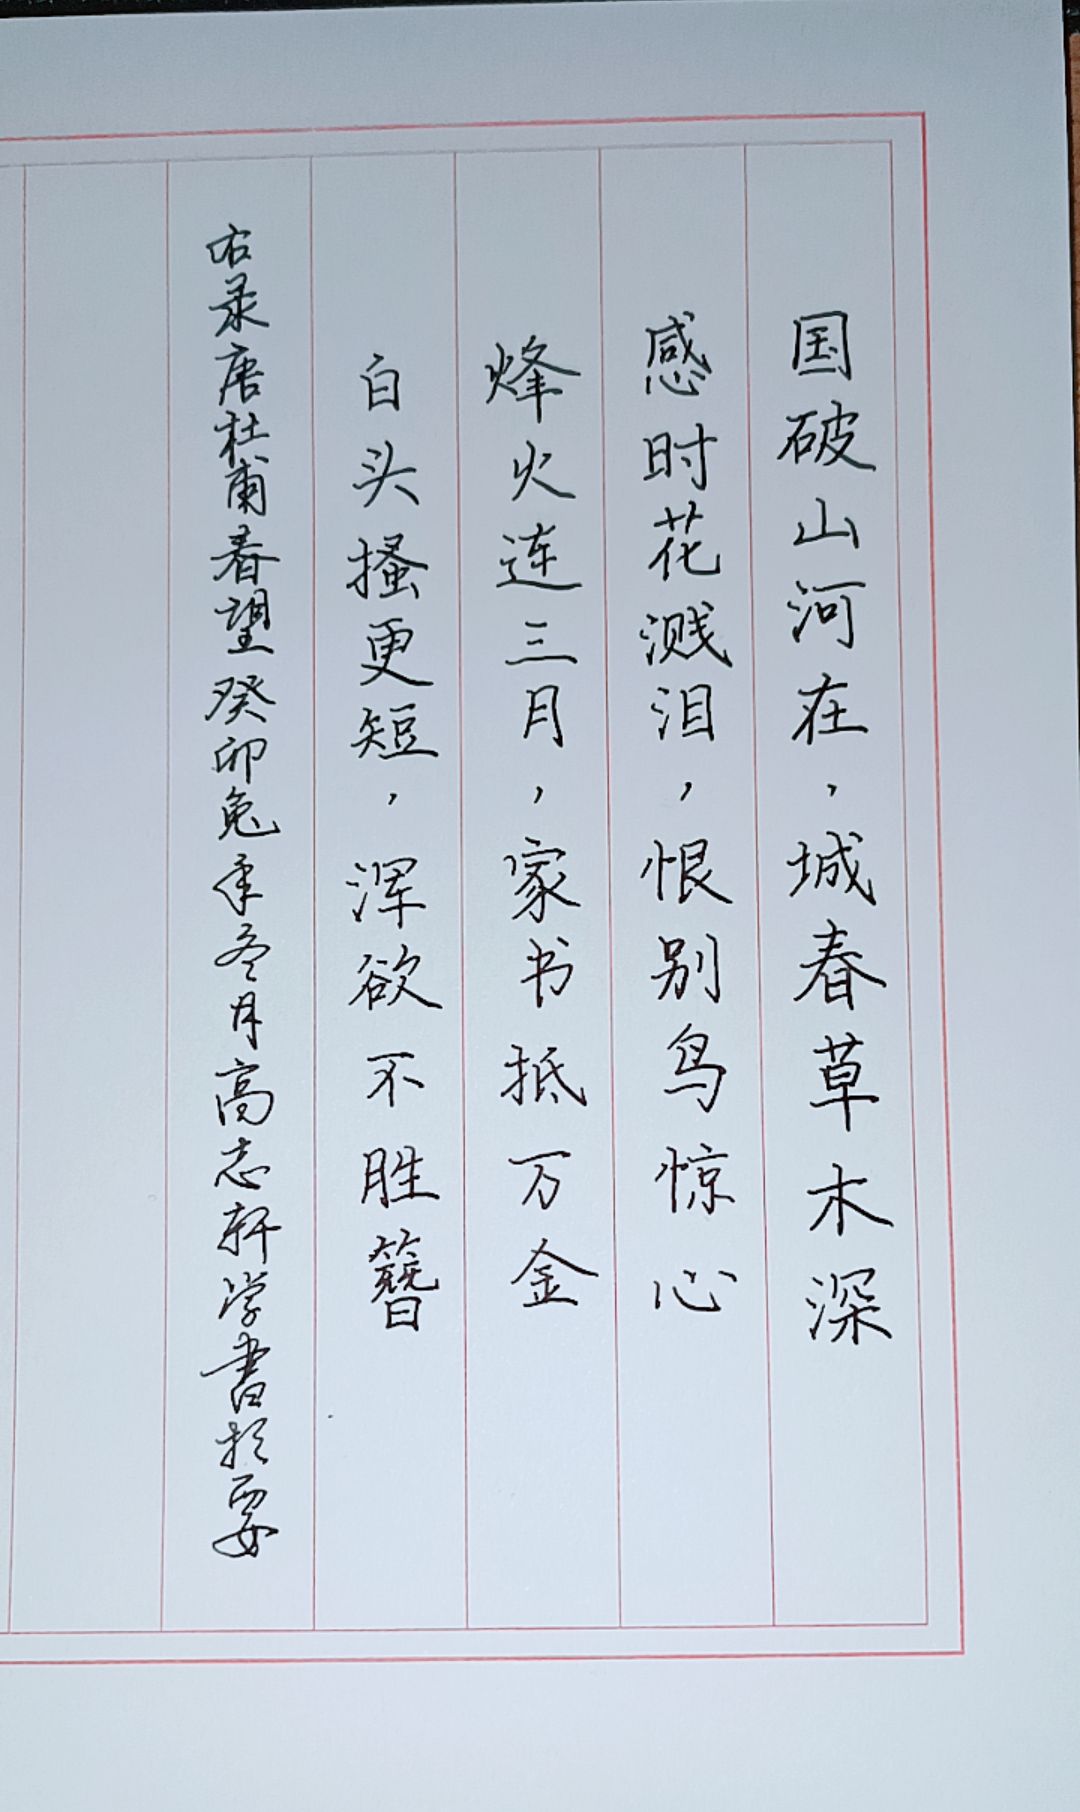 国破山河在，城春草木深
感时花溅泪，恨别鸟惊心
烽火连三月，家书抵万金
白头搔更短，浑欲不胜簪
右录唐杜甫春望癸卯兔年冬月高志轩学書于要